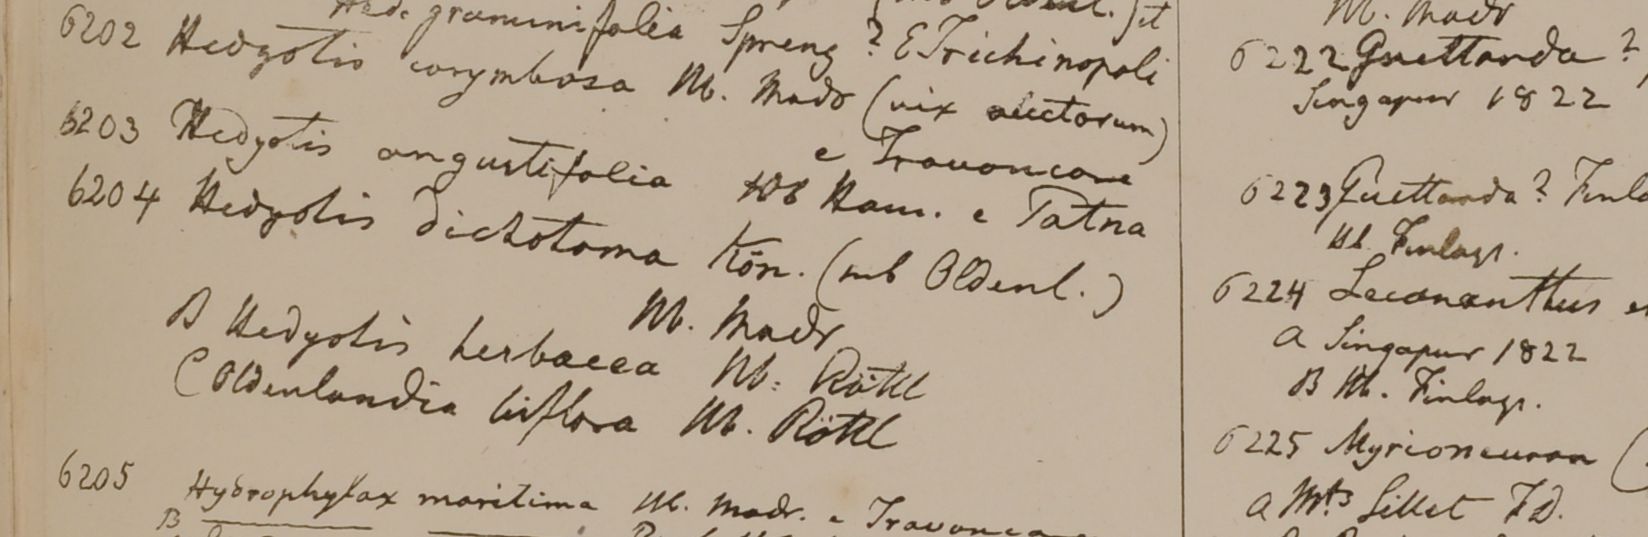 Hed. graminifolia Spreng ? E Trichinopoli
6202 Hedyotis corymbosa Hb. Madr (vix auctorum)
e Travancore
6203 Hedyotis angustifolia Hb Ham. e Patna
6204 Hedyotis dichotoma Kön. (sub Oldenl.)
Hb. Madr
B Hedyotis herbacea Hb. Röttl
C Oldenlandia biflora Hb. Röttl
6205 Hydrophylax maritima Hb. Madr. e Travanco
B
Hb. Madr
6222 Guettarda ?
Singapur 1822
6223 Guettarda ? Finl
Hb. Finlays.
6224 Lecananthus e
a Singapur 1822
B Hb. Finlays.
6225 Myrioneuron (
a Mts Sillet FD.